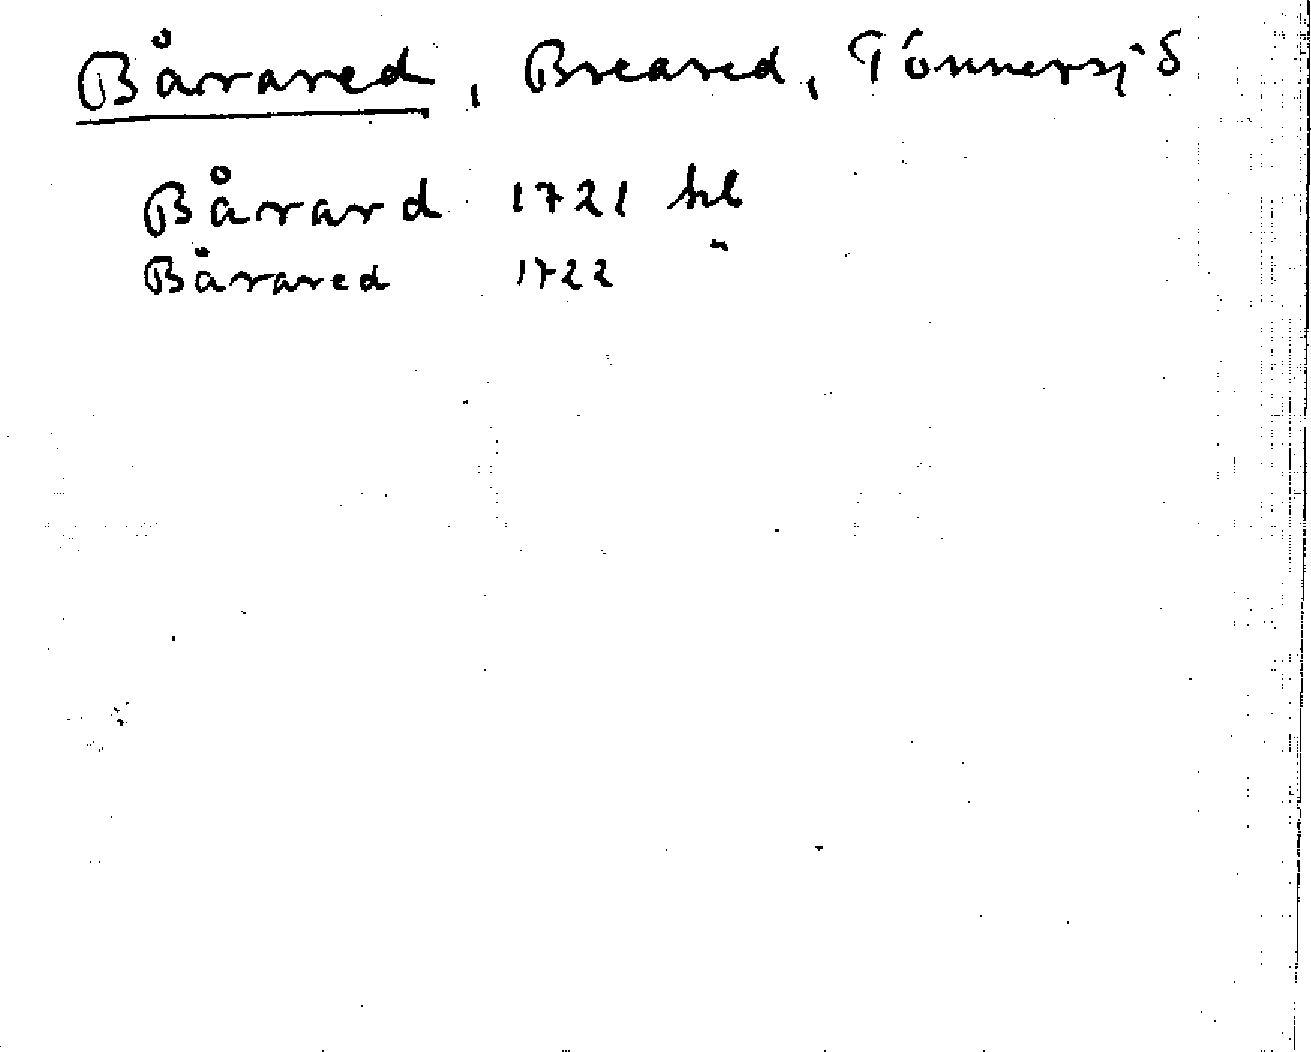 Bårared, Breared, Tönnersjö
Bårard 1721 hb
Bårared 1722 "